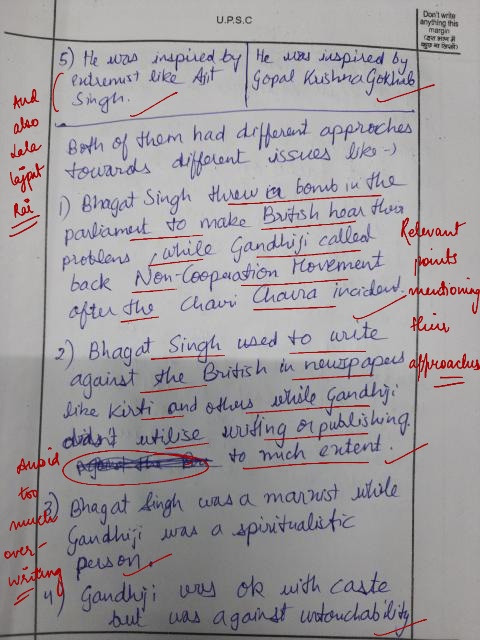 U.P.S.C
Don't write
anything this
margin
(इस भाग में
कुछ ना लिखें)
5) He was inspired by
extremist like Ajit
Singh.
He was inspired by
Gopal Krushna Gokhale
And
also
Lala
Lajpat
Rai
Both of them had different approches
towards different issues like →
1) Bhagat Singh threw a bomb in the
parliament to make British hear their
problems, while Gandhiji called
back Non-Cooperation Movement
after the Chavri Chavra incident.
Relevant
points
mentioning
their
approaches
2) Bhagat Singh used to write
against the British in newspapers
like Kirti and others while Gandhiji
didn't utilise writing or publishing
to much extent.
Avoid
too
much
over-
writing
3) Bhagat Singh was a marxist while
Gandhiji was a spiritualistic
person.
4) Gandhiji was ok with caste
but was against untouchability